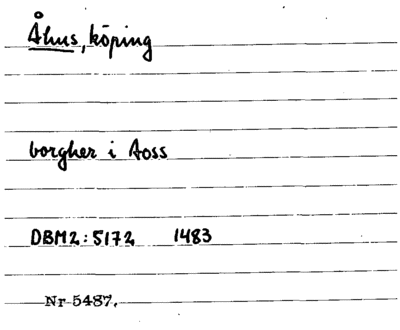 Åhus, köping
borgher i Aoss
DBM2:5172 1483
Nr 5487.